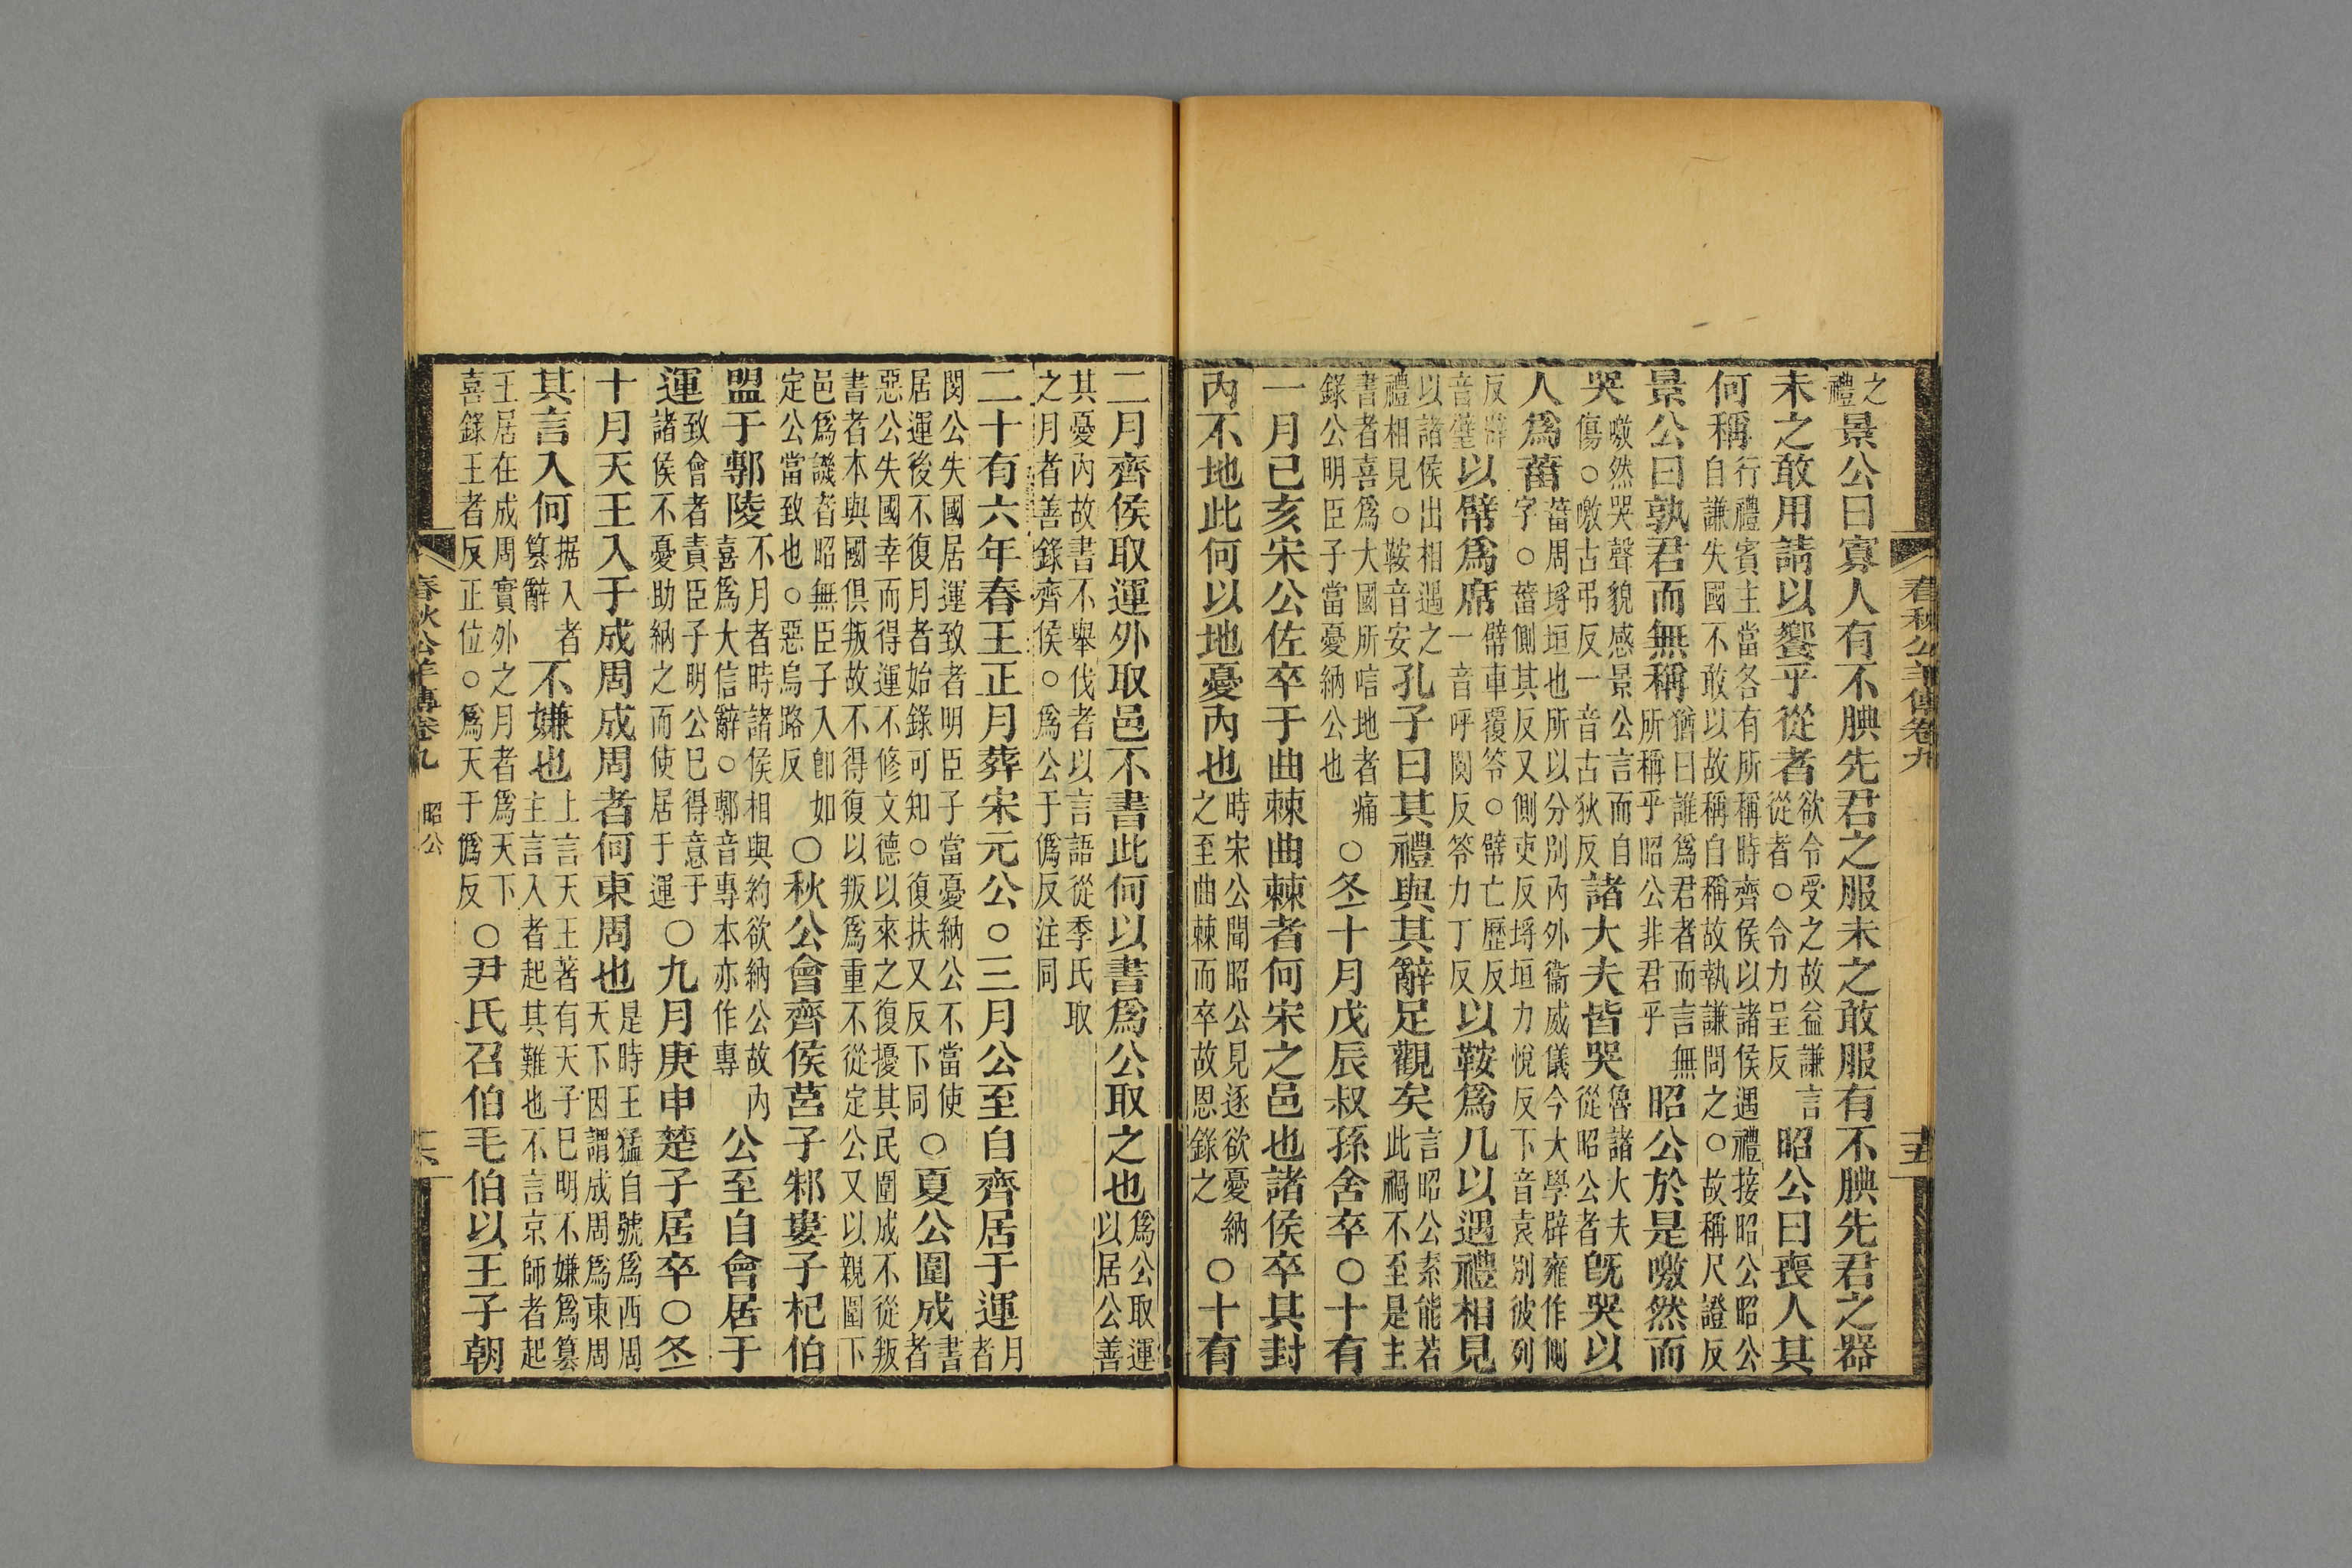 禮之景公曰寡人有不腆先君之服未之敢服有不腆先君之器
未之敢用請以饗乎從者欲令受之故益謙言從者○令力呈反昭公曰喪人其
何稱行禮賓主當各有所稱時齊侯以諸侯遇禮接昭公昭公自謙失國不敢以故稱自稱故執謙問之○故稱尺證反
景公曰孰君而無稱猶曰誰爲君者而言無所稱乎昭公非君乎昭公於是噭然而
哭噭然哭聲貌感景公言而自傷○噭古弔反一音古狄反諸大夫皆哭魯諸大夫從昭公者旣哭以
人爲菑菑周埓垣也所以分別內外衞威儀今大學辟雍作側字○菑側其反又側吏反埓垣力悅反下音袁別彼列
反辟音璧以幦爲席幦車覆笭○幦亡歷反一音呼闃反笭力丁反以鞍爲几以遇禮相見
以諸侯出相遇之禮相見○鞍音安孔子曰其禮與其辭足觀矣言昭公素能若此禍不至是主
書者喜爲大國所唁地者痛錄公明臣子當憂納公也○冬十月戊辰叔孫舍卒○十有
一月己亥宋公佐卒于曲棘曲棘者何宋之邑也諸侯卒其封
內不地此何以地憂內也時宋公聞昭公見逐欲憂納之至曲棘而卒故恩錄之○十有
二月齊侯取運外取邑不書此何以書爲公取之也爲公取運以居公善
其憂內故書不舉伐者以言語從季氏取之月者善錄齊侯○爲公于僞反注同
二十有六年春王正月葬宋元公○三月公至自齊居于運月者
閔公失國居運致者明臣子當憂納公不當使居運後不復月者始錄可知○復扶又反下同○夏公圍成書者
惡公失國幸而得運不修文德以來之復擾其民圍成不從叛書者本與國俱叛故不得復以叛爲重不從定公又以親圍下
邑爲譏者昭無臣子入卽如定公當致也○惡烏路反○秋公會齊侯莒子邾婁子杞伯
盟于鄟陵不月者時諸侯相與約欲納公故內喜爲大信辭○鄟音專本亦作專公至自會居于
運致會者責臣子明公已得意于諸侯不憂助納之而使居于運○九月庚申楚子居卒○冬
十月天王入于成周成周者何東周也是時王猛自號爲西周天下因謂成周爲東周
其言入何据入者篡辭不嫌也上言天王著有天子已明不嫌爲篡主言入者起其難也不言京師者起
王居在成周實外之月者爲天下喜錄王者反正位○爲天于僞反○尹氏召伯毛伯以王子朝
春秋公羊傳卷九
五
春秋公羊傳卷九
昭公